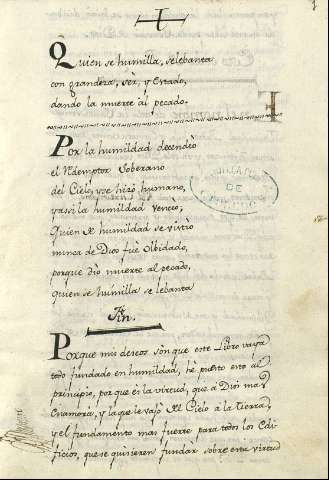 Quien se humilla, selebanta
con grandeza, sèr, y Estado,
dando la muerte al pecado.
Por la humildad decendiò
el Rdemptor Soberano
del Cielo, y se hizo humano,
yassi la humildad Venciò,
Quien de humildad se vistio
nunca de Dios fuè Olbidado,
porque dio muerte al pecado,
quien se humilla se lebanta
Fin.
Porque mis deseos son que este Libro vaya
todo fundado en humildad, he puesto esto al
principio, por que és la virtud, que a Dios mas
Enamora, y laque le vajò del Cielo a la tierra,
y el fundamento mas fuerte para todos los Edi-
ficios, quese quisieren fundar sobre esta virtud
DE